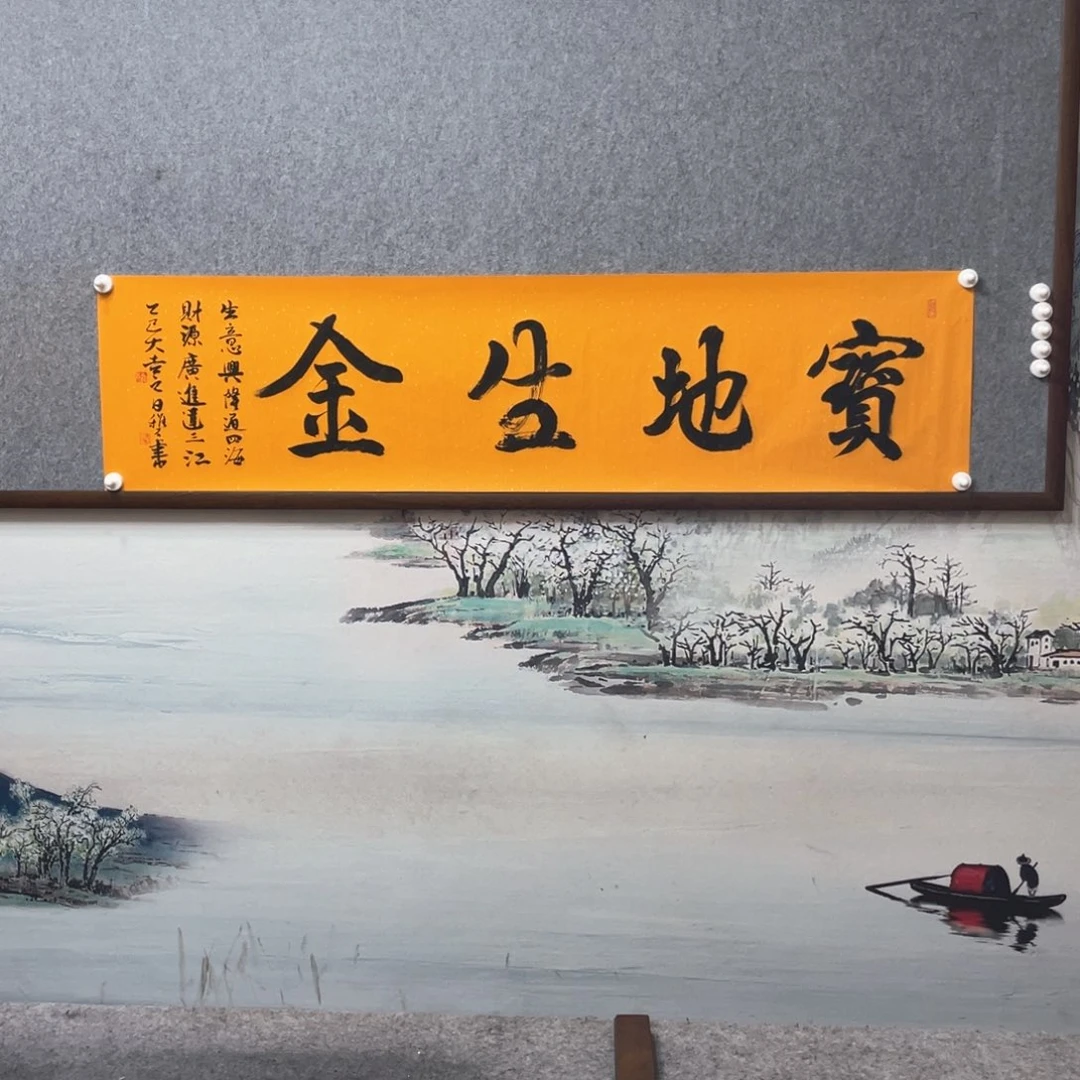 寶地生金
生意興隆通四海
財源廣進達三江
乙巳大吉之日雅之書